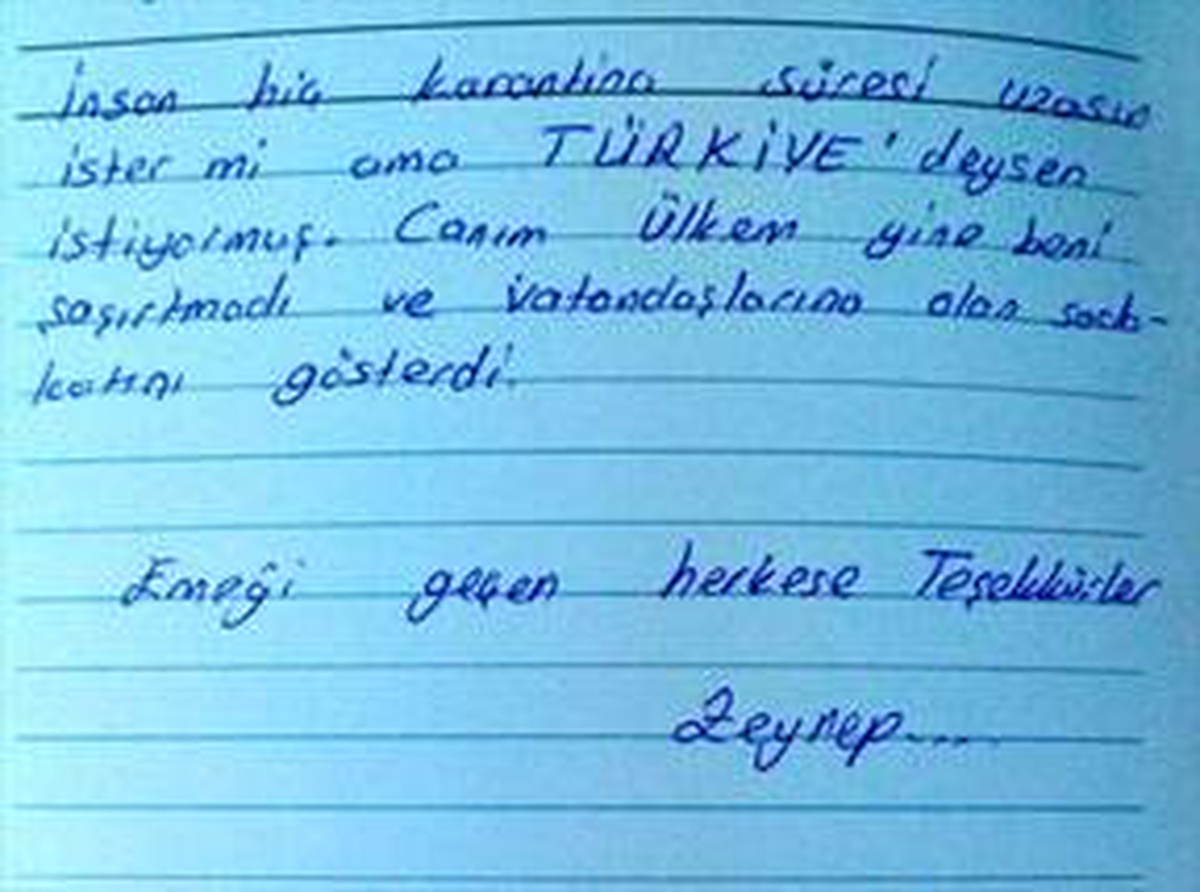 İnsan hiç karantina süresi uzasın
ister mi ama TÜRKİYE'deysen
istiyormuş. Canım Ülkem yine beni
şaşırtmadı ve vatandaşlarına olan sada-
katını gösterdi.
Emeği geçen herkese Teşekkürler
Zeynep....